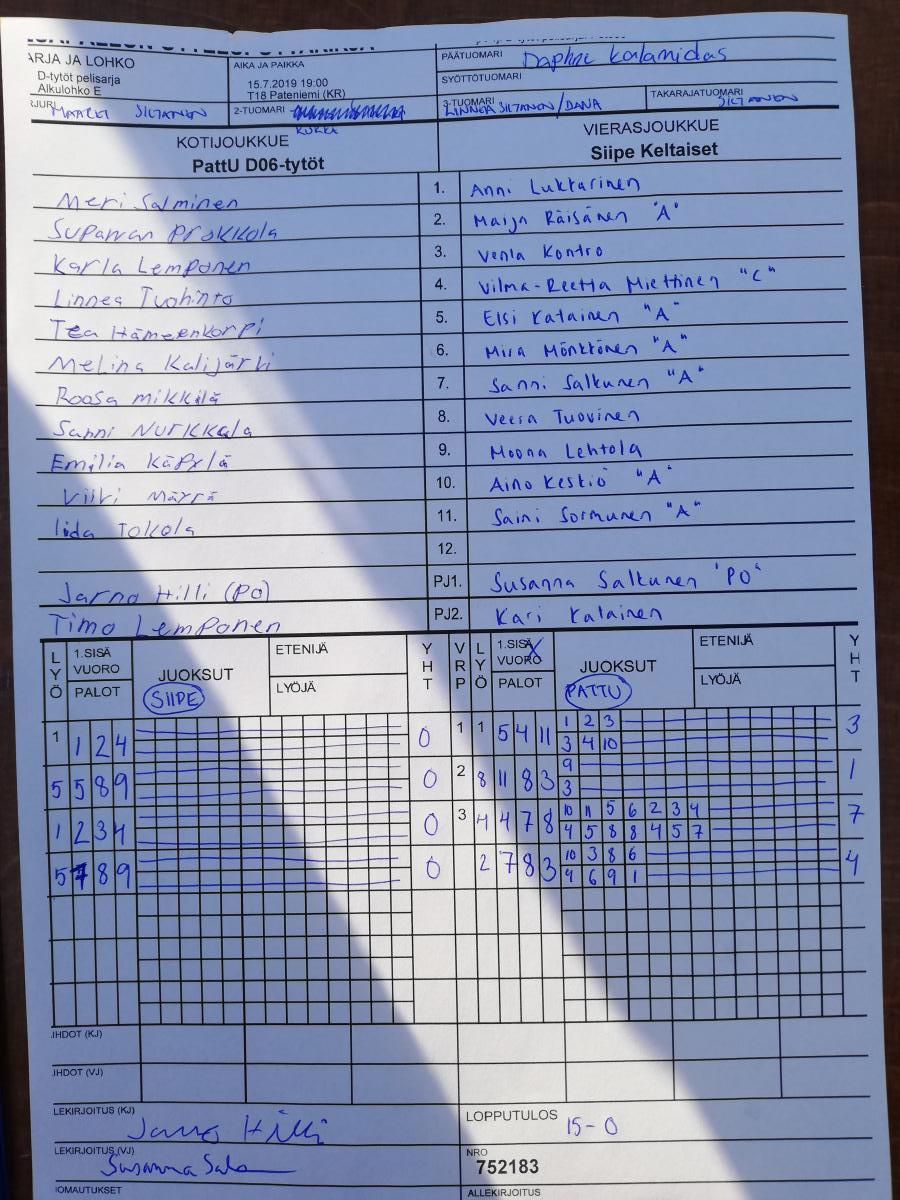 ARJA JA LOHKO
D-tytöt pelisarja
Alkulohko E
AIKA JA PAIKKA
15.7.2019 19:00
T18 Pateniemi (KR)
PÄÄTUOMARI Daphne Kalamidas
SYÖTTÖTUOMARI
2-TUOMARI
KURKA
3-TUOMARI LINNEA SILTANEN/DANA
TAKARAJATUOMARI SILTANEN
KOTIJOUKKUE
PattU D06-tytöt
VIERASJOUKKUE
Siipe Keltaiset
Meri Salminen 1. Anni Lukkarinen
Prokkola 2. Maija Räisänen "A"
Karla Lemponen 3. Venla Kontro
Linnea Tuohinto 4. Vilma-Reetta Miettinen "C"
Tea Hämeenkorpi 5. Elsi Katainen "A"
Melina Kalijärvi 6. Miia Mönkkönen "A"
Roosa Mikkilä 7. Sanni Salkunen "A"
Sanni Nurkkala 8. Veera Tuovinen
Emilia Käpylä 9. Moona Lehtola
Viivi Märrä 10. Aino Kestiö "A"
Iida Tokola 11. Saini Sormunen "A"
12.
Jarno Hilli (PO) PJ1. Susanna Salkunen "PO"
Timo Lemponen PJ2. Kari Katainen
LYÖ 1.SISÄ VUORO PALOT JUOKSUT SIIPE ETENIJÄ LYÖJÄ YHT VRP LYÖ 1.SISÄ VUORO X PALOT JUOKSUT PATTU ETENIJÄ LYÖJÄ YHT
1 1 2 4 0 1 1 5 4 11 1 2 3 3
3 4 10
5 5 8 9 0 2 8 11 8 3 9 1
3
1 2 3 4 0 3 4 4 7 8 10 11 5 6 2 3 4 7
4 5 8 8 4 5 7
5 7 8 9 0 2 7 8 3 10 3 8 6 4
4 6 9 1
JHDOT (KJ)
JHDOT (VJ)
LEKIRJOITUS (KJ) Jarno Hilli
LOPPUTULOS 15-0
LEKIRJOITUS (VJ) Susanna
NRO
752183
IOMAUTUKSET
ALLEKIRJOITUS